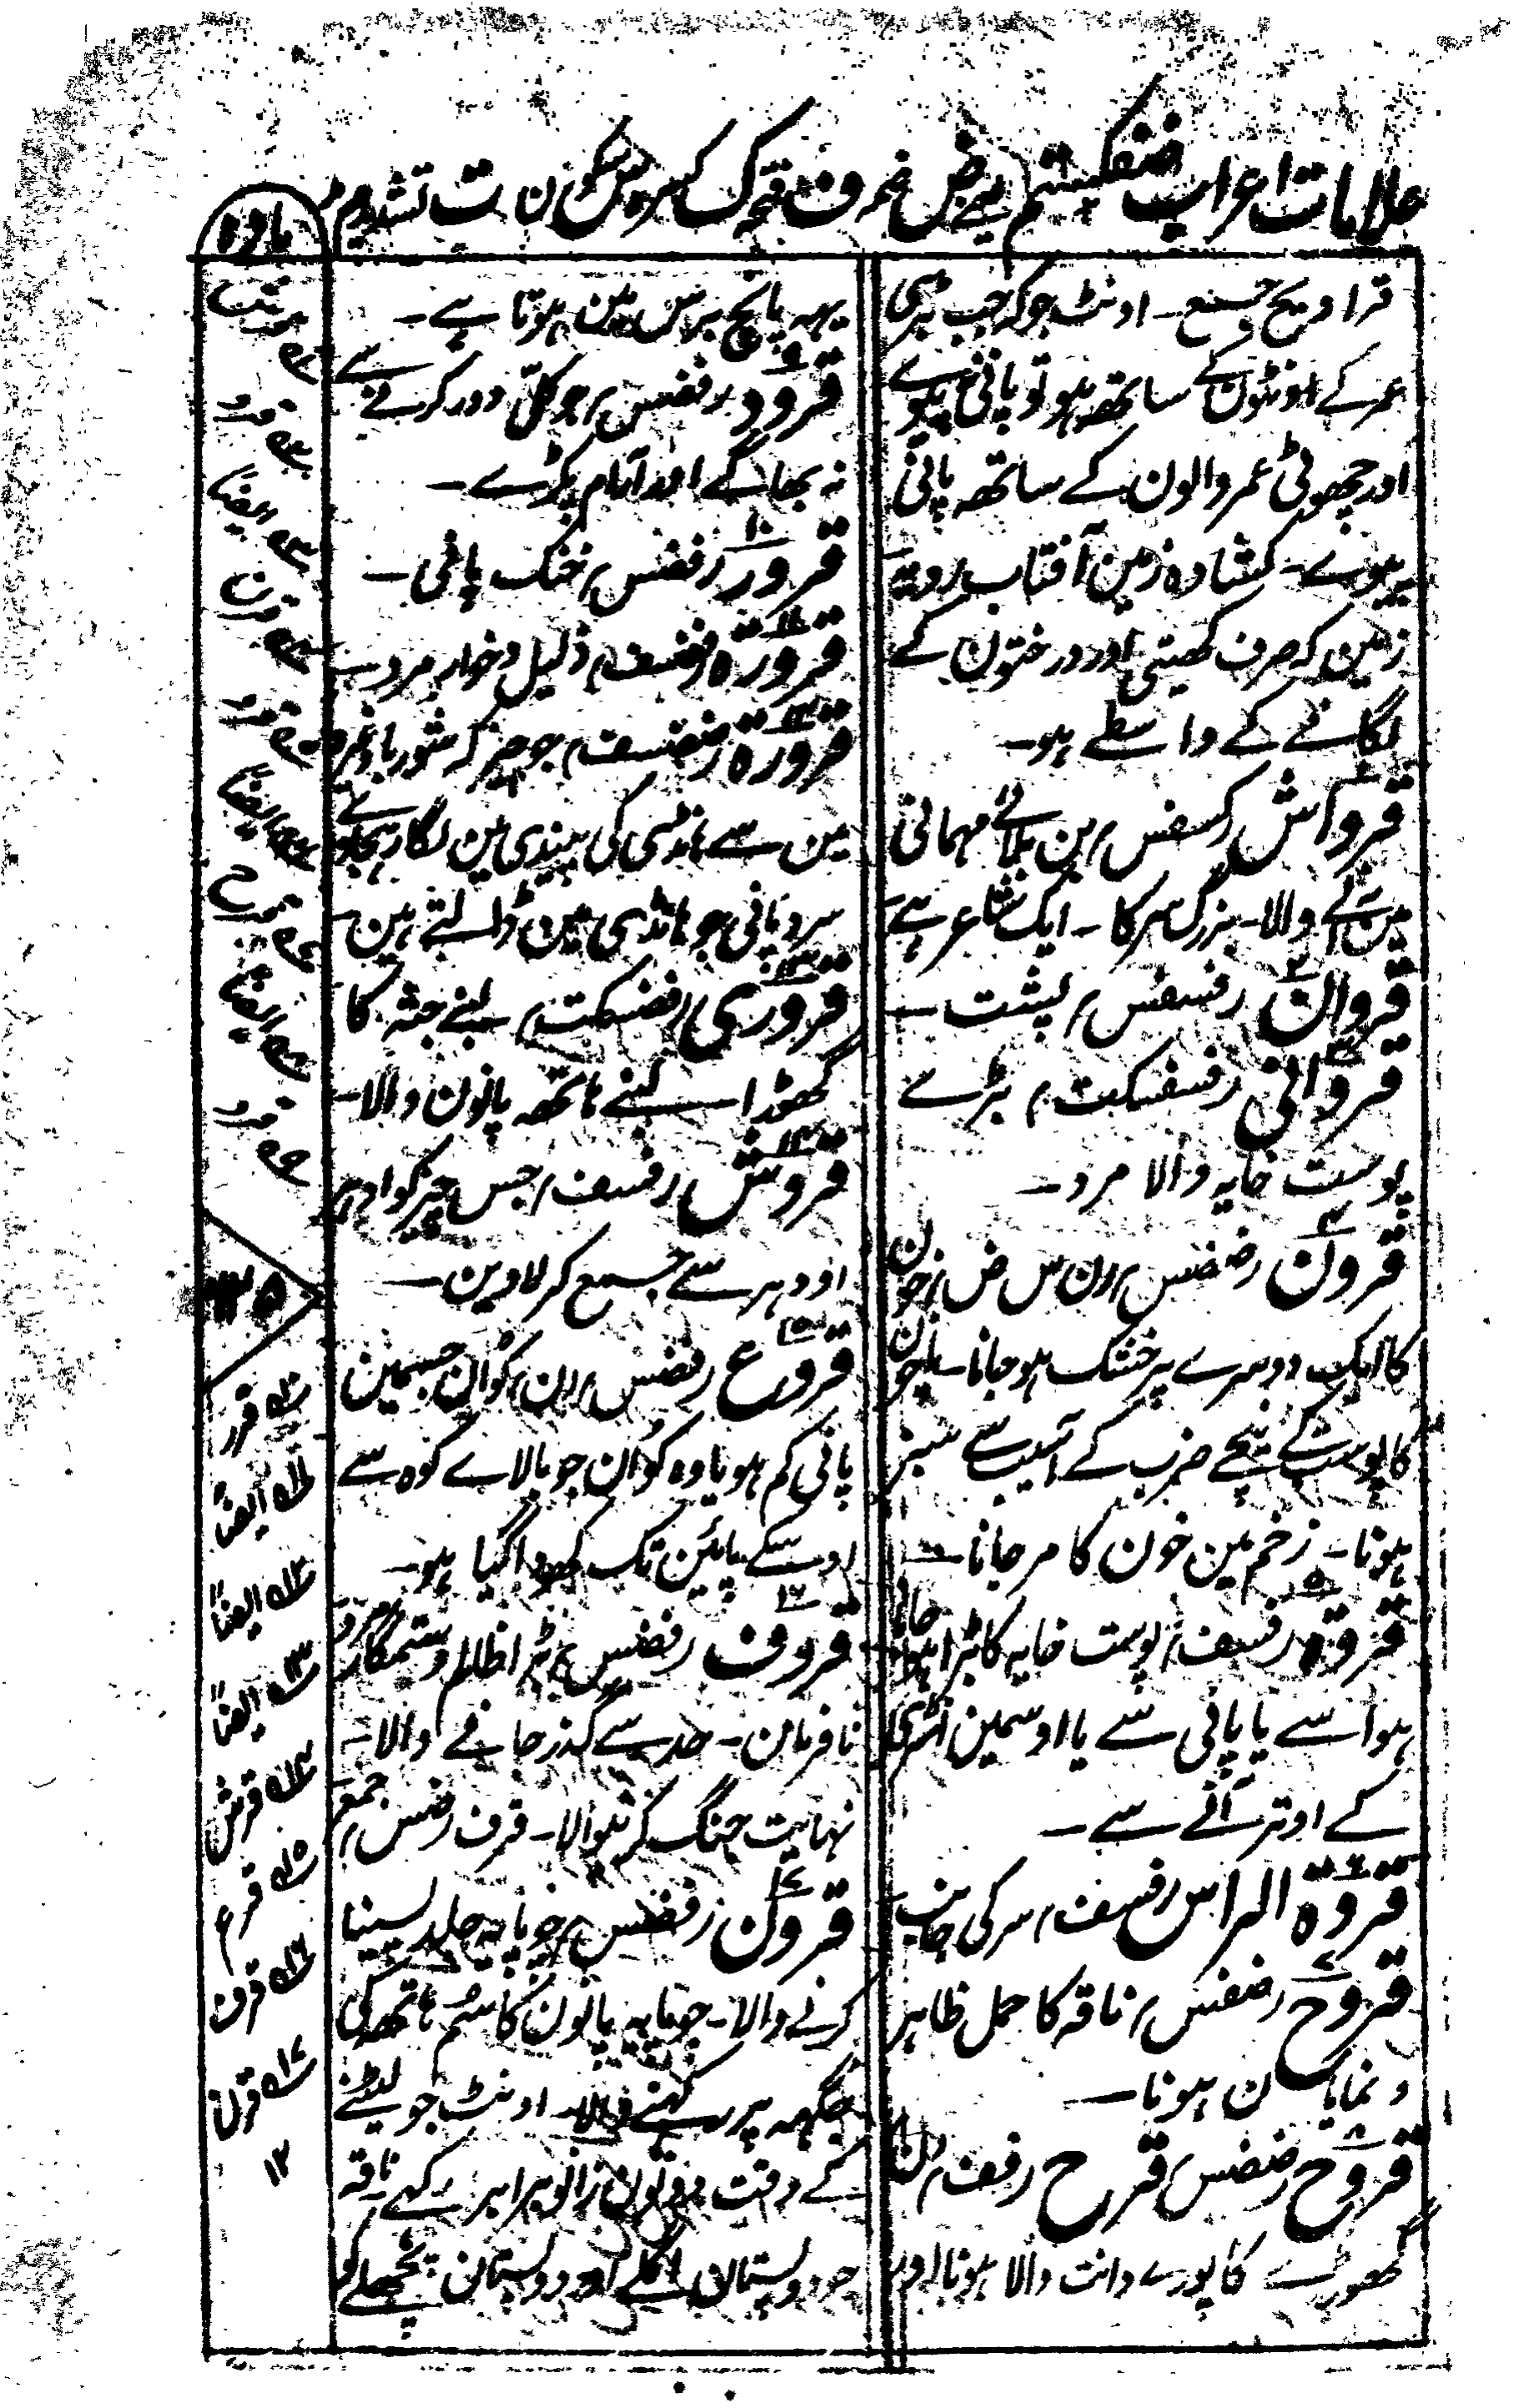 علامات اعراب ضفکستم یعنے ض ضمہ ف فتحہ ک کسرہ س سکون ت تشدید م
مادہ
قراویح جمع۔ اونٹ جو کہ جب بڑی
عمر کے اونٹون کے ساتھہ ہو تو پانی پیوے
اور چھوٹی عمر والون کے ساتھہ پانی
پیوے۔ کشادہ زمین آفتاب رویہ
زمین کہ صرف کھیتی اور درختون کے
لگانے کے واسطے ہو۔
قرواش رکسفس بن بلائے مہمانی
مین آنے والا۔ بزرگ سر کا۔ ایک شاعر ہے
قروان رفسفس پشت۔
قروانی رفسفسکت بڑے
پوست خایہ والا مرد۔
قرون رضضس رون س ض زخون
کا ایک دوسرے پر خشک ہو جانا۔ یا خون
کا پوست کے نیچے ضرب کے آسیب سے سبز
ہونا۔ زخم مین خون کا مر جانا۔
قروة رفسف پوست خایہ کا بڑا ہو جانا
ہوا سے یا پانی سے یا اوسمین انتڑی
کے اوتر آنے سے۔
قروة الراس رفسف سر کی جانب
قروح رضضس ناقہ کا حمل ظاہر
و نمایان ہونا۔
قروح رضضس قرح رفف دن
گھوڑے کا پورے دانت والا ہونا اور
یہہ پانچ برس مین ہوتا ہے۔
قرود رفضس جو کلّ دور کرنے سے
نہ بھاگے اور آرام پکڑے۔
قرور رفضس خنک پانی۔
قرورہ رفضسف ذلیل و خوار مرد
قرورة رضضسف جو چیز کہ شوربا وغیرہ
مین سے ہانڈی کی پیندی مین لگا رہجاوے
سرد پانی جو ہانڈی مین ڈالتے ہین
قروری رفضسکت لنبے جثہ کا
گھوڑا لنبے ہاتھہ پانون والا۔
قروش رفسف جس چیز کو ادہر
اودہر سے جمع کر لاوین۔
قروع رفضس رون کوان جسمین
پانی کم ہو یا وہ کوان جو بالاے کوہ سے
اوسکے پائین تک کھودا گیا ہو۔
قروف رفضس بڑا ظالم و ستمگار
نافرمان۔ حد سے گذر جانے والا۔
نہایت جنگ کرنیوالا۔ قرف رضس جمع
قرون رفضس چوپایہ جلد پسینا
کرنے والا۔ چوپایہ پانون کا سم ہاتھہ کی
جگہہ پر رکہنے والا۔ اونٹ جو لیٹنے
کے وقت دونون زانو برابر رکہے۔ ناقہ
جو دو پستان اگلے اور دو پستان پچھلے کو
ایضاً
قرن
قرد
ایضاً
قرح
ایضاً
قرد
۱۳۵
۱۰ قرر
۱۱ ایضاً
۱۲ ایضاً
۱۳ ایضاً
۱۴ قرش
۱۵ قرع
۱۶ قرف
۱۷ قرن
۱۲